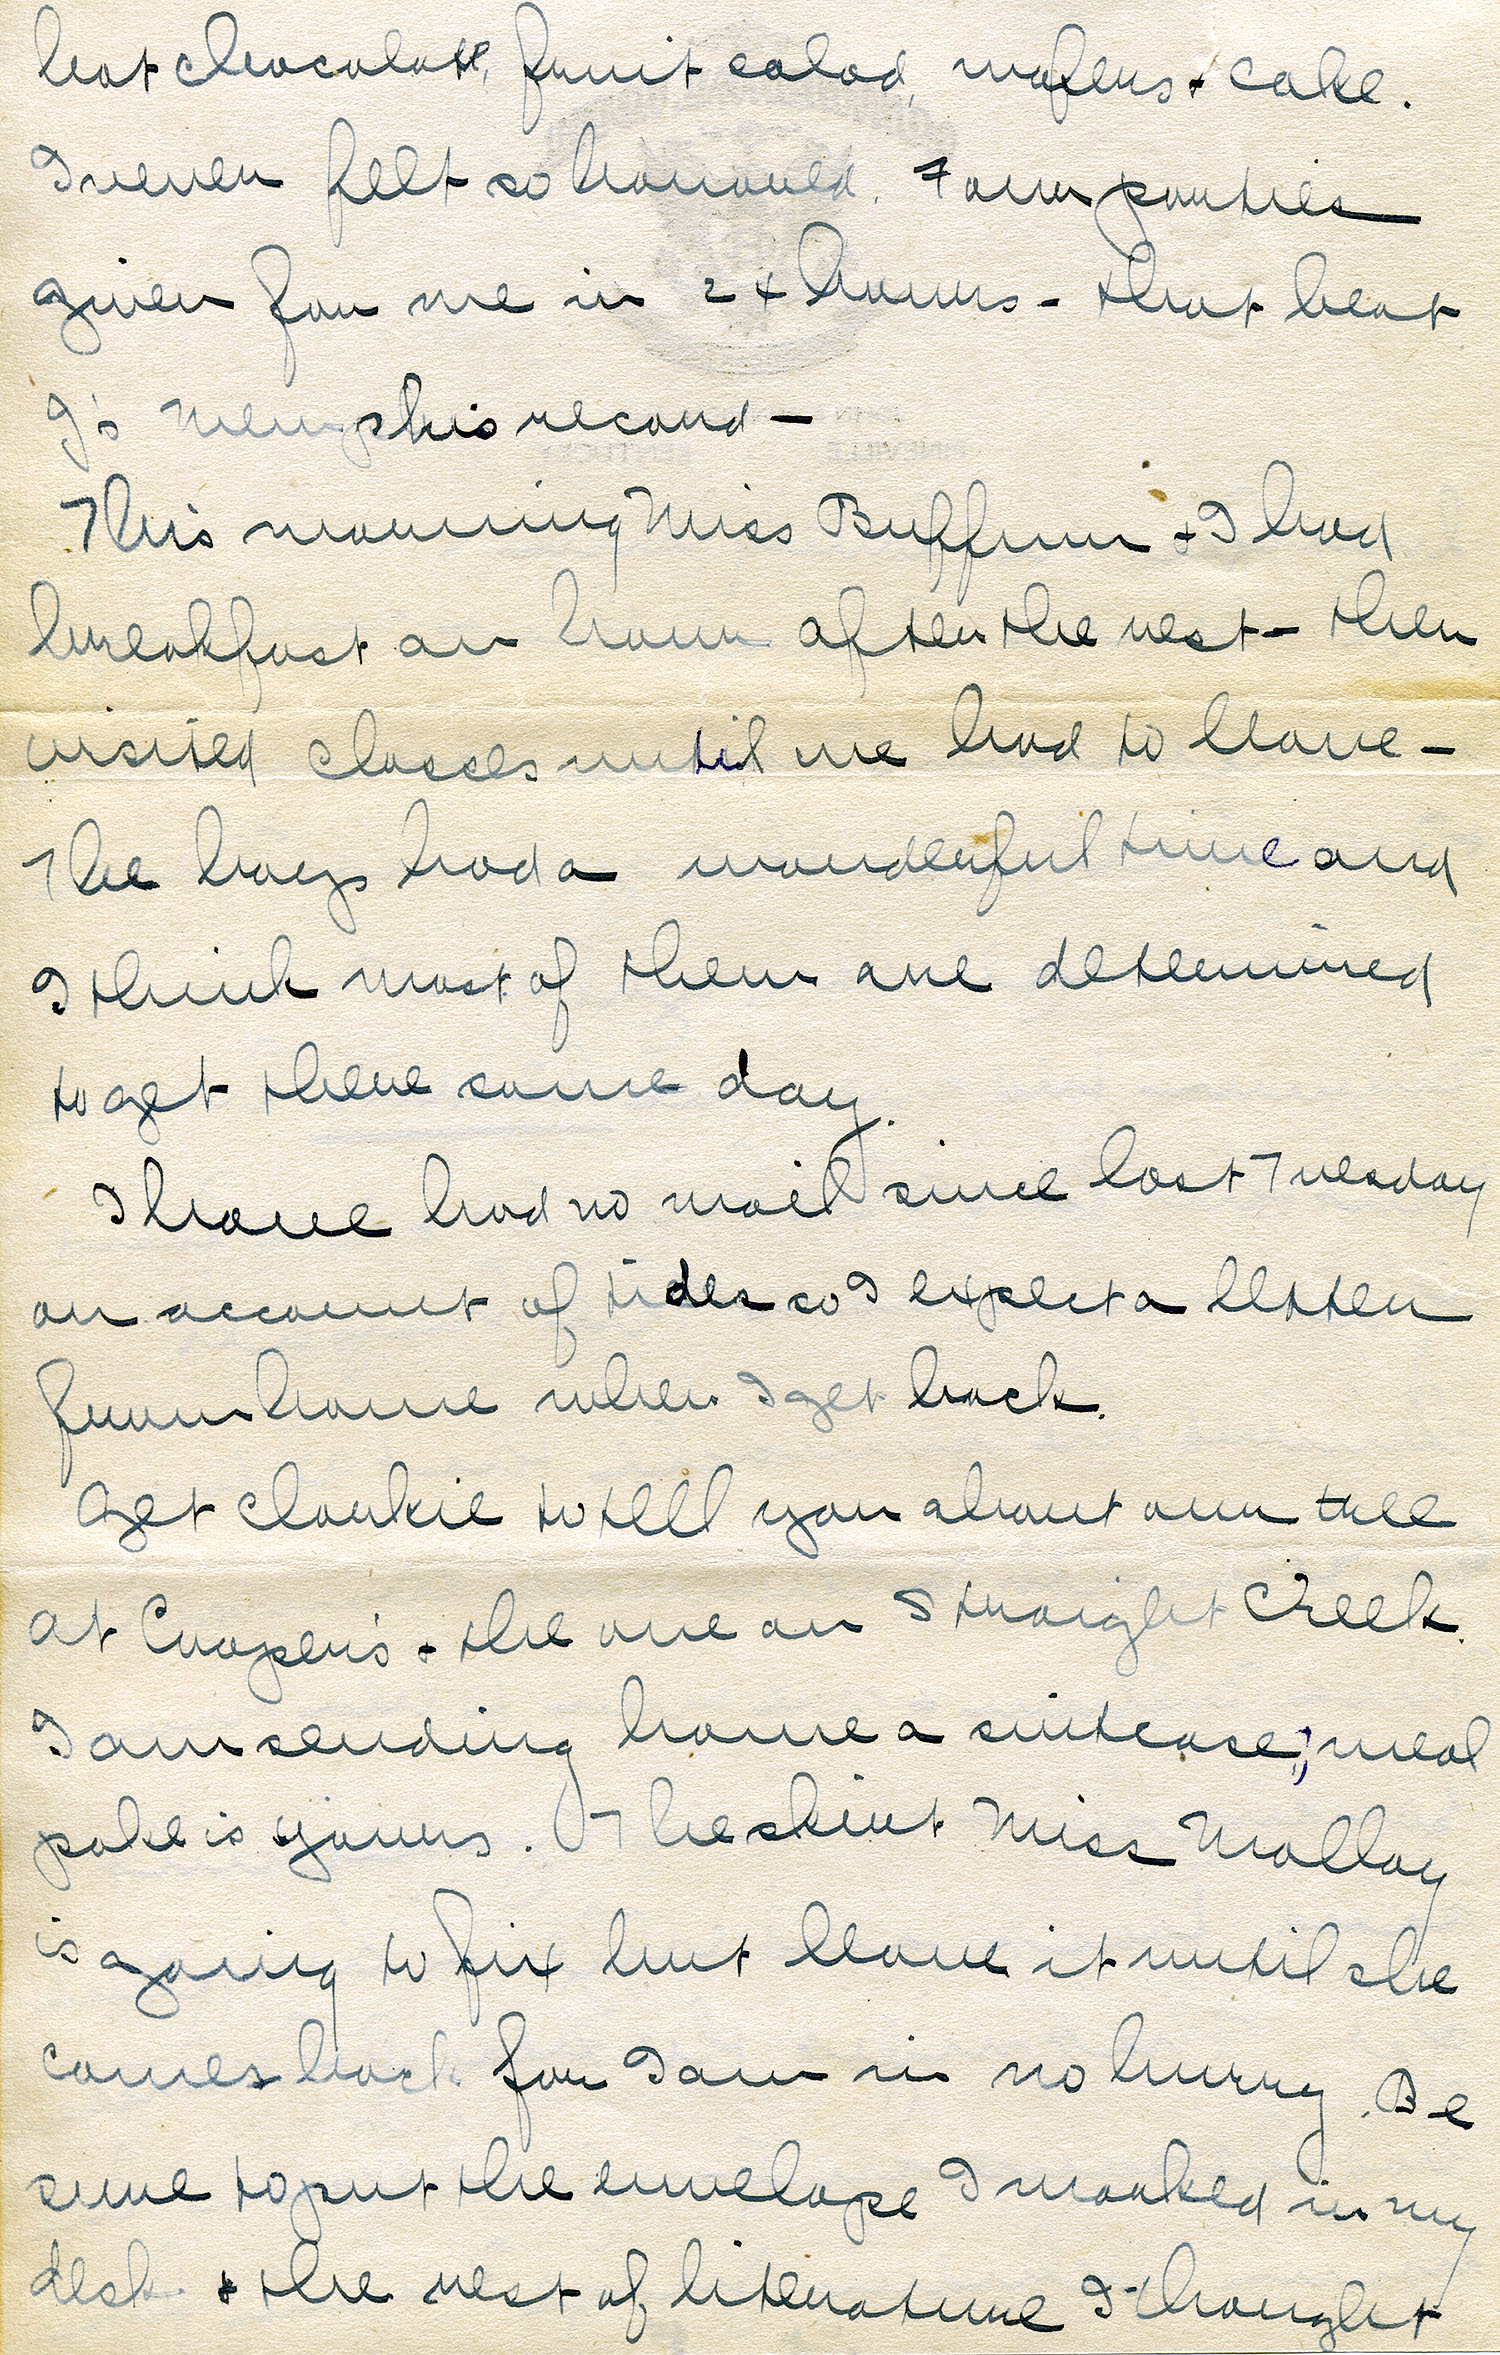 hot chocolate, fruit salad, wafers + cake.
I never felt so honored. Four parties
given for me in 24 hours - that beat
J's Memphis record -
This morning Miss Buffum + I had
breakfast an hour after the rest - then
visited classes until we had to leave -
The boys had a wonderful time and
I think most of them are determined
to get there some day.
I have had no mail since last Tuesday
on account of tides so I expect a letter
from home when I get back.
Get Clarkie to tell you about our tree
at Cooper's + the one on Straight Creek.
I am sending home a suitcase; meal
poke is yours. The skirt Miss Malloy
is going to fix but leave it until she
comes back for I am in no hurry. Be
sure to put the envelope I marked in my
desk + the rest of literature I thought